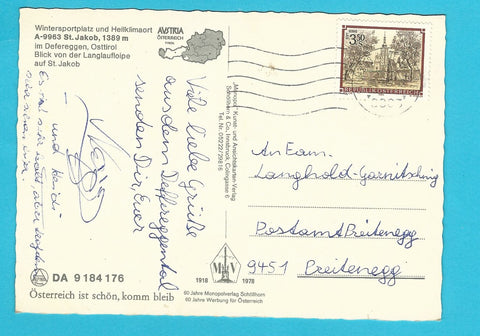 Wintersportplatz und Heilklimaort
A-9963 St. Jakob, 1389 m
im Defereggen, Osttirol
Blick von der Langlaufloipe
auf St. Jakob
AUSTRIA
ÖSTERREICH
Viele liebe Grüße
aus dem Deffereggental
senden Dir Euer
und Heidi
Es ist sehr kalt, aber
sehr schön hier.
DA 9 184 176
Österreich ist schön, komm bleib
"Monopol" Kunst- und Ansichtskarten-Verlag
Schöllhorn & Co., Innsbruck, Colingasse 6
Tel. Nr. 05222/29816
1918
1978
60 Jahre Monopolverlag Schöllhorn
60 Jahre Werbung für Österreich
S 3.50
REPUBLIK ÖSTERREICH
An Fam.
Langhold-Garnitschnig
Postamt Preitenegg
9451 Preitenegg